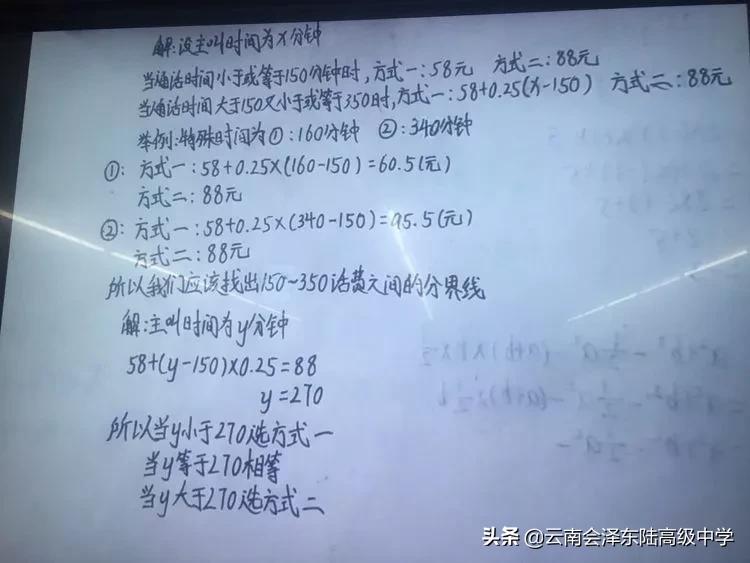 解:设主叫时间为x分钟
当通话时间小于或等于150分钟时,方式一:58元 方式二:88元
当通话时间大于150又小于或等于350时,方式一:58+0.25(x-150) 方式二:88元
举例:特殊时间为①:160分钟 ②:340分钟
①: 方式一:58+0.25×(160-150)=60.5(元)
方式二:88元
②: 方式一:58+0.25×(340-150)=95.5(元)
方式二:88元
所以我们应该找出150~350话费之间的分界线
解:主叫时间为y分钟
58+(y-150)×0.25=88
y=270
所以当y小于270选方式一
当y等于270相等
当y大于270选方式二
头条 @云南会泽东陆高级中学